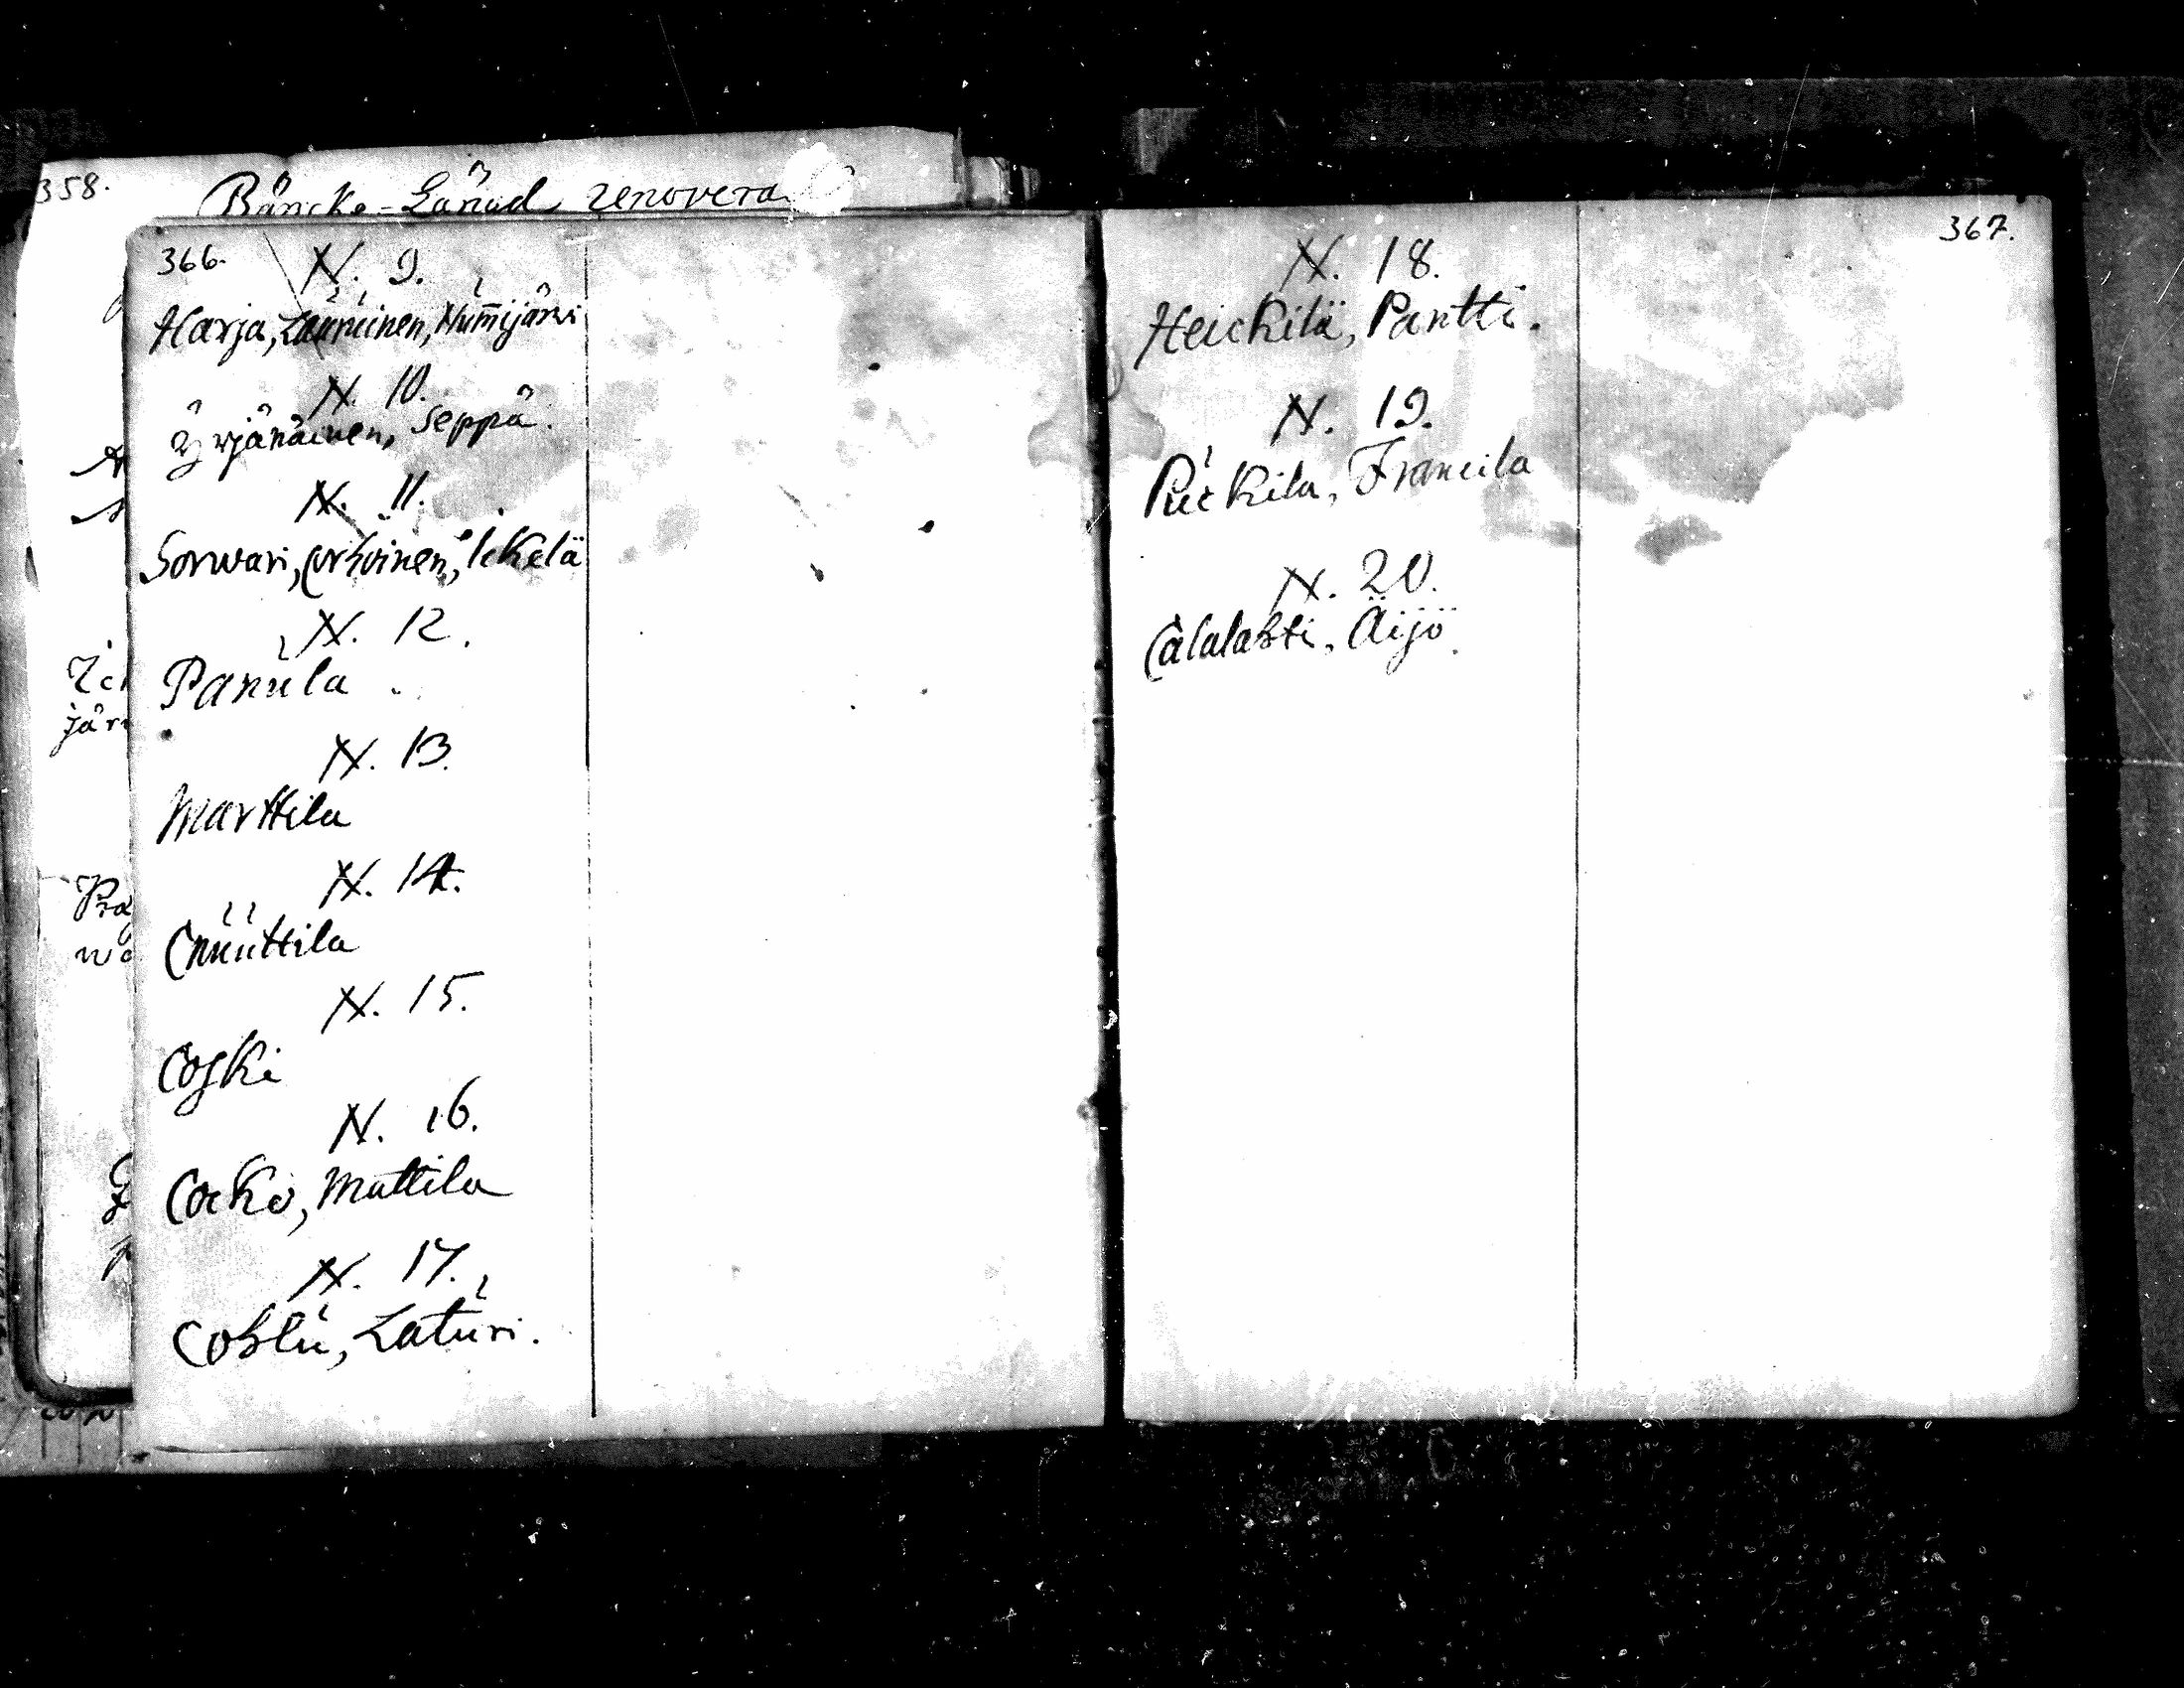 358.
Bäncke-Länad renovera
366.
N. 9.
Harja, Lauruinen, Num̄ijärwi
N. 10.
Yrjänäinen, Seppä.
N. 11.
Sorwari, Corhoinen, Ickelä
N. 12.
Panula
N. 13.
Marttila
N. 14.
Cnuuttila
N. 15.
Coski
N. 16.
Cocko, Mattila
N. 17.
Cohlu, Laturi.
367.
N. 18.
Heickilä, Pantti.
N. 19.
Puckila, Francila
N. 20.
Calalahti, Äijö.